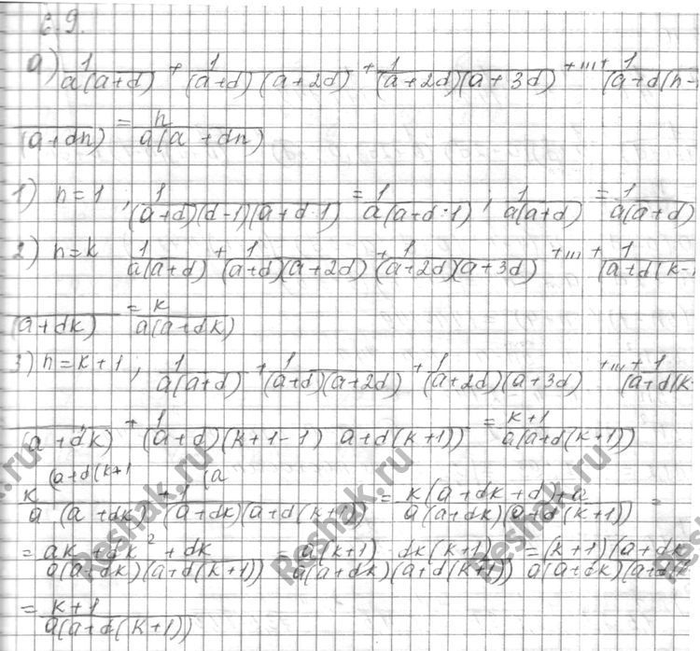 6.9.
а) 1/(a(a+d)) + 1/((a+d)(a+2d)) + 1/((a+2d)(a+3d)) + ... + 1/((a+d(n-
(a+dn) = n/(a(a+dn))
1) n=1, 1/((a+d)(d-1)(a+d·1)) = 1/(a(a+d·1)); 1/(a(a+d)) = 1/(a(a+d))
2) n=k 1/(a(a+d)) + 1/((a+d)(a+2d)) + 1/((a+2d)(a+3d)) + ... + 1/((a+d(k-
(a+dk) = k/(a(a+dk))
3) n=k+1, 1/(a(a+d)) + 1/((a+d)(a+2d)) + 1/((a+2d)(a+3d)) + ... + 1/((a+d(k-
(a+dk) + 1/((a+d)(k+1-1) a+d(k+1)) = (k+1)/(a(a+d(k+1)))
(a+d(k+1 (a
k/(a(a+dk)) + 1/((a+dk)(a+d(k+1))) = (k(a+dk+d)+a)/(a(a+dk)(a+d(k+1))) =
= (ak+dk²+dk)/(a(a+dk)(a+d(k+1))) = (a(k+1) dk(k+1))/(a(a+dk)(a+d(k+1))) = (k+1)(a+dk)/(a(a+dk)(a+d
= (k+1)/(a(a+d(k+1)))
Reshak.ru
Reshak.ru
Reshak.ru